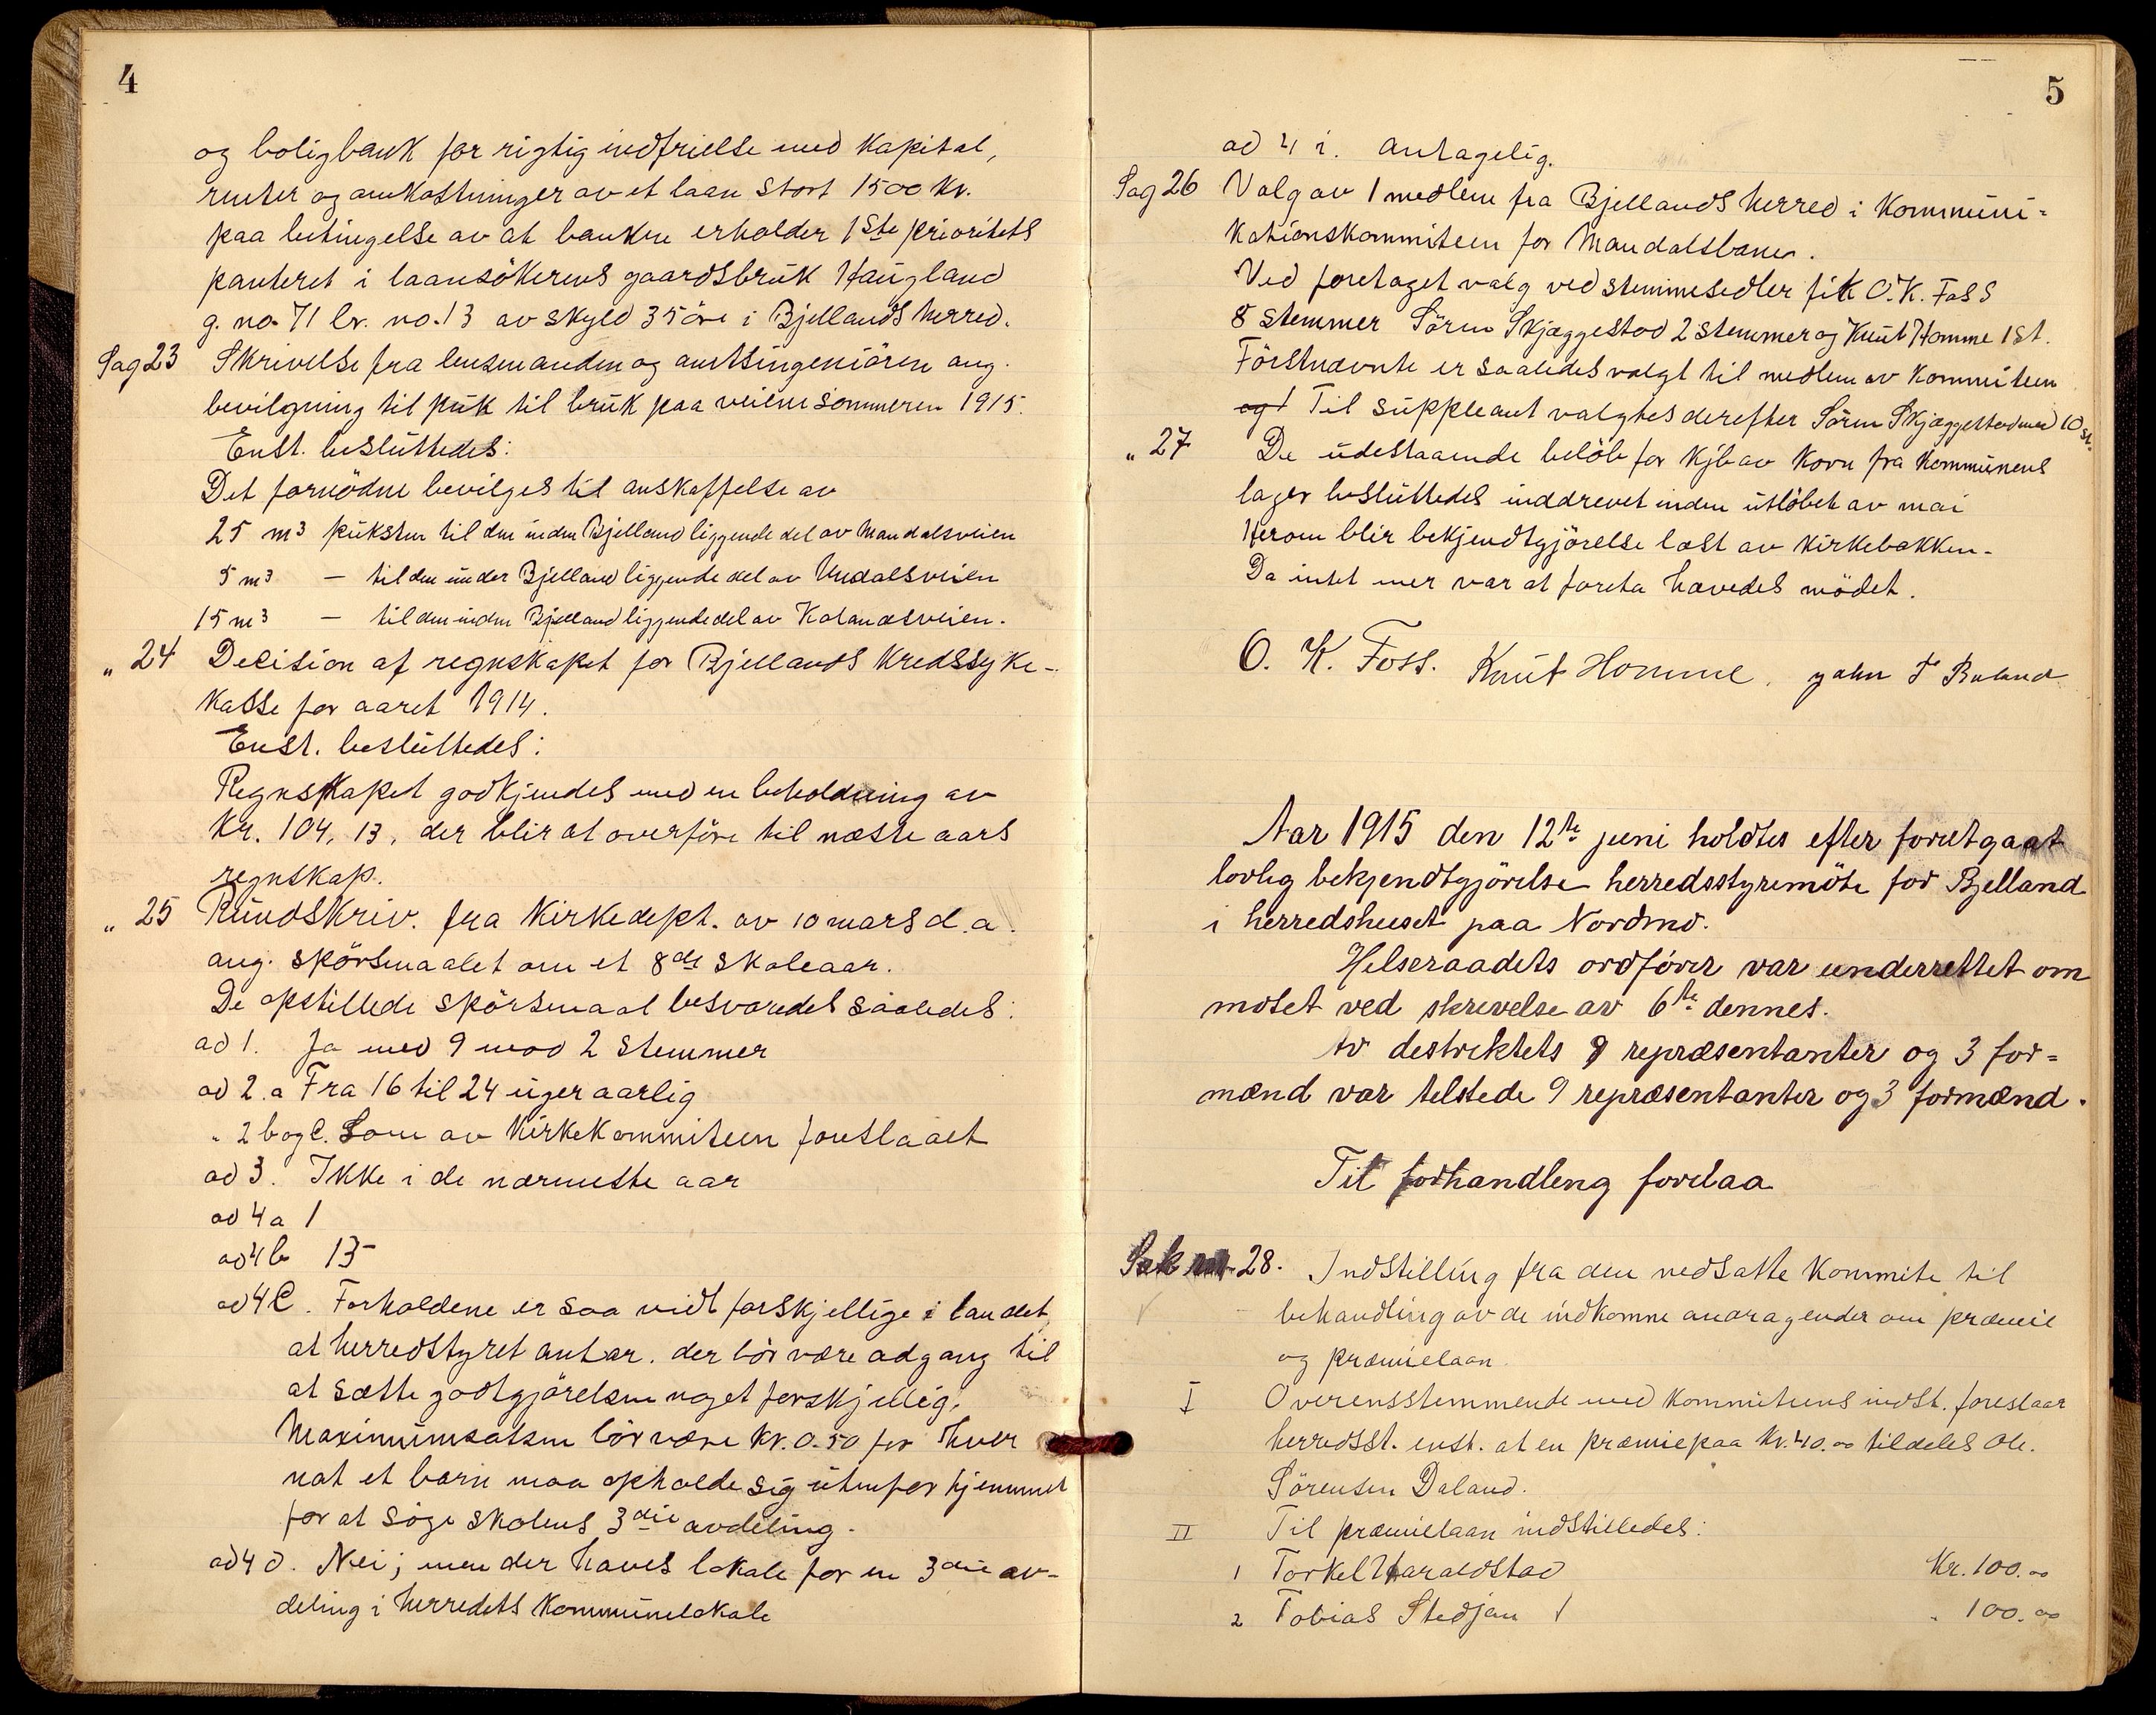 4
og boligbank for rigtig indfrielse med kapital,
renter og omkostninger av et laan stort 1500 kr.
paa betingelse av at banken erholder 1ste prioritets
panteret i laansökerens gaardsbruk Haugland
g. no. 71 br. no. 13 av skyld 35 öre i Bjellands herred.
Sag 23 Skrivelse fra lensmanden og amtsingeniören ang.
bevilgning til puk til bruk paa veiene sommeren 1915.
Enst. besluttedes:
Det fornödne bevilges til anskaffelse av
25 m3 puksten til den inden Bjelland liggende del av Mandalsveien
5 m3 — til den under Bjelland liggende del av Undalsveien
15 m3 — til den inden Bjelland liggende del av Kolandsveien.
„ 24 Decision af regnskapet for Bjellands Kredssyke-
kasse for aaret 1914.
Enst. besluttedes:
Regnskapet godkjendes med en beholdning av
Kr. 104,13, der blir at overföre til næste aars
regnskap.
„ 25 Rundskriv. fra Kirkedept. av 10 mars d.a.
ang. spörsmaalet om et 8de skoleaar.
De opstillede spörsmaal besvaredes saaledes:
ad 1. Ja med 9 mod 2 stemmer
ad 2.a Fra 16 til 24 uger aarlig
„ 2 b og c. Som av Kirkekommiteen foreslaaet
ad 3. Ikke i de nærmeste aar
ad 4 a 1
ad 4 b 13
ad 4 c. Forholdene er saa vidt forskjellige i landet,
at herredstyret antar. der bör være adgang til
at sætte godtgjörelsen noget forskjellig.
Maximumsatsen bör være kr. 0.50 for hver
nat et barn maa opholde sig utenfor hjemmet
for at söge skolens 3die avdeling.
ad 4 d. Nei; men der haves lokale for en 3die av-
deling i herredets Kommunelokale
5
ad 4 i. Antagelig.
Sag 26 Valg av 1 medlem fra Bjellands herred i Kommuni-
kationskommiteen for Mandalsbanen.
Ved foretaget valg ved stemmesedler fik O.K. Foss
8 stemmer Sören Skjæggestad 2 stemmer og Knut Homme 1 st.
Förstnævnte er saaledes valgt til medlem av Kommiteen
og Til suppleant valgtes derefter Sören Skjæggestad med 10 st.
„ 27 De udestaaende belöb for kjöb av korn fra kommunens
lager besluttedes inddrevet inden utlöbet av mai
Herom blir bekjendtgjörelse læst av kirkebakken.
Da intet mer var at foreta hævedes mödet.
O. K. Foss. Knut Homme.
Aar 1915 den 12te juni holdtes efter forutgaat
lovlig bekjendtgjörelse herredsstyremöte for Bjelland
i herredshuset paa Nordmo.
Helseraadets ordförer var underrettet om
motet ved skrivelse av 6te dennes.
Av destriktets 9 repræsentanter og 3 for-
mænd var tilstede 9 repræsentanter og 3 formænd.
Til forhandling forelaa
Sak nr. 28. Indstilling fra den nedsatte Kommite til
behandling av de indkomne andragender om præmie
og præmielaan.
I Overensstemmende med Kommiteens indst. foreslaar
herredsst. enst. at en præmie paa kr. 40.00 tildeles Ole.
Sörensen Daland.
II Til præmielaan indstilledes:
1 Torkel Haraldstad Kr. 100.00
2 Tobias Stedjan „ 100.00